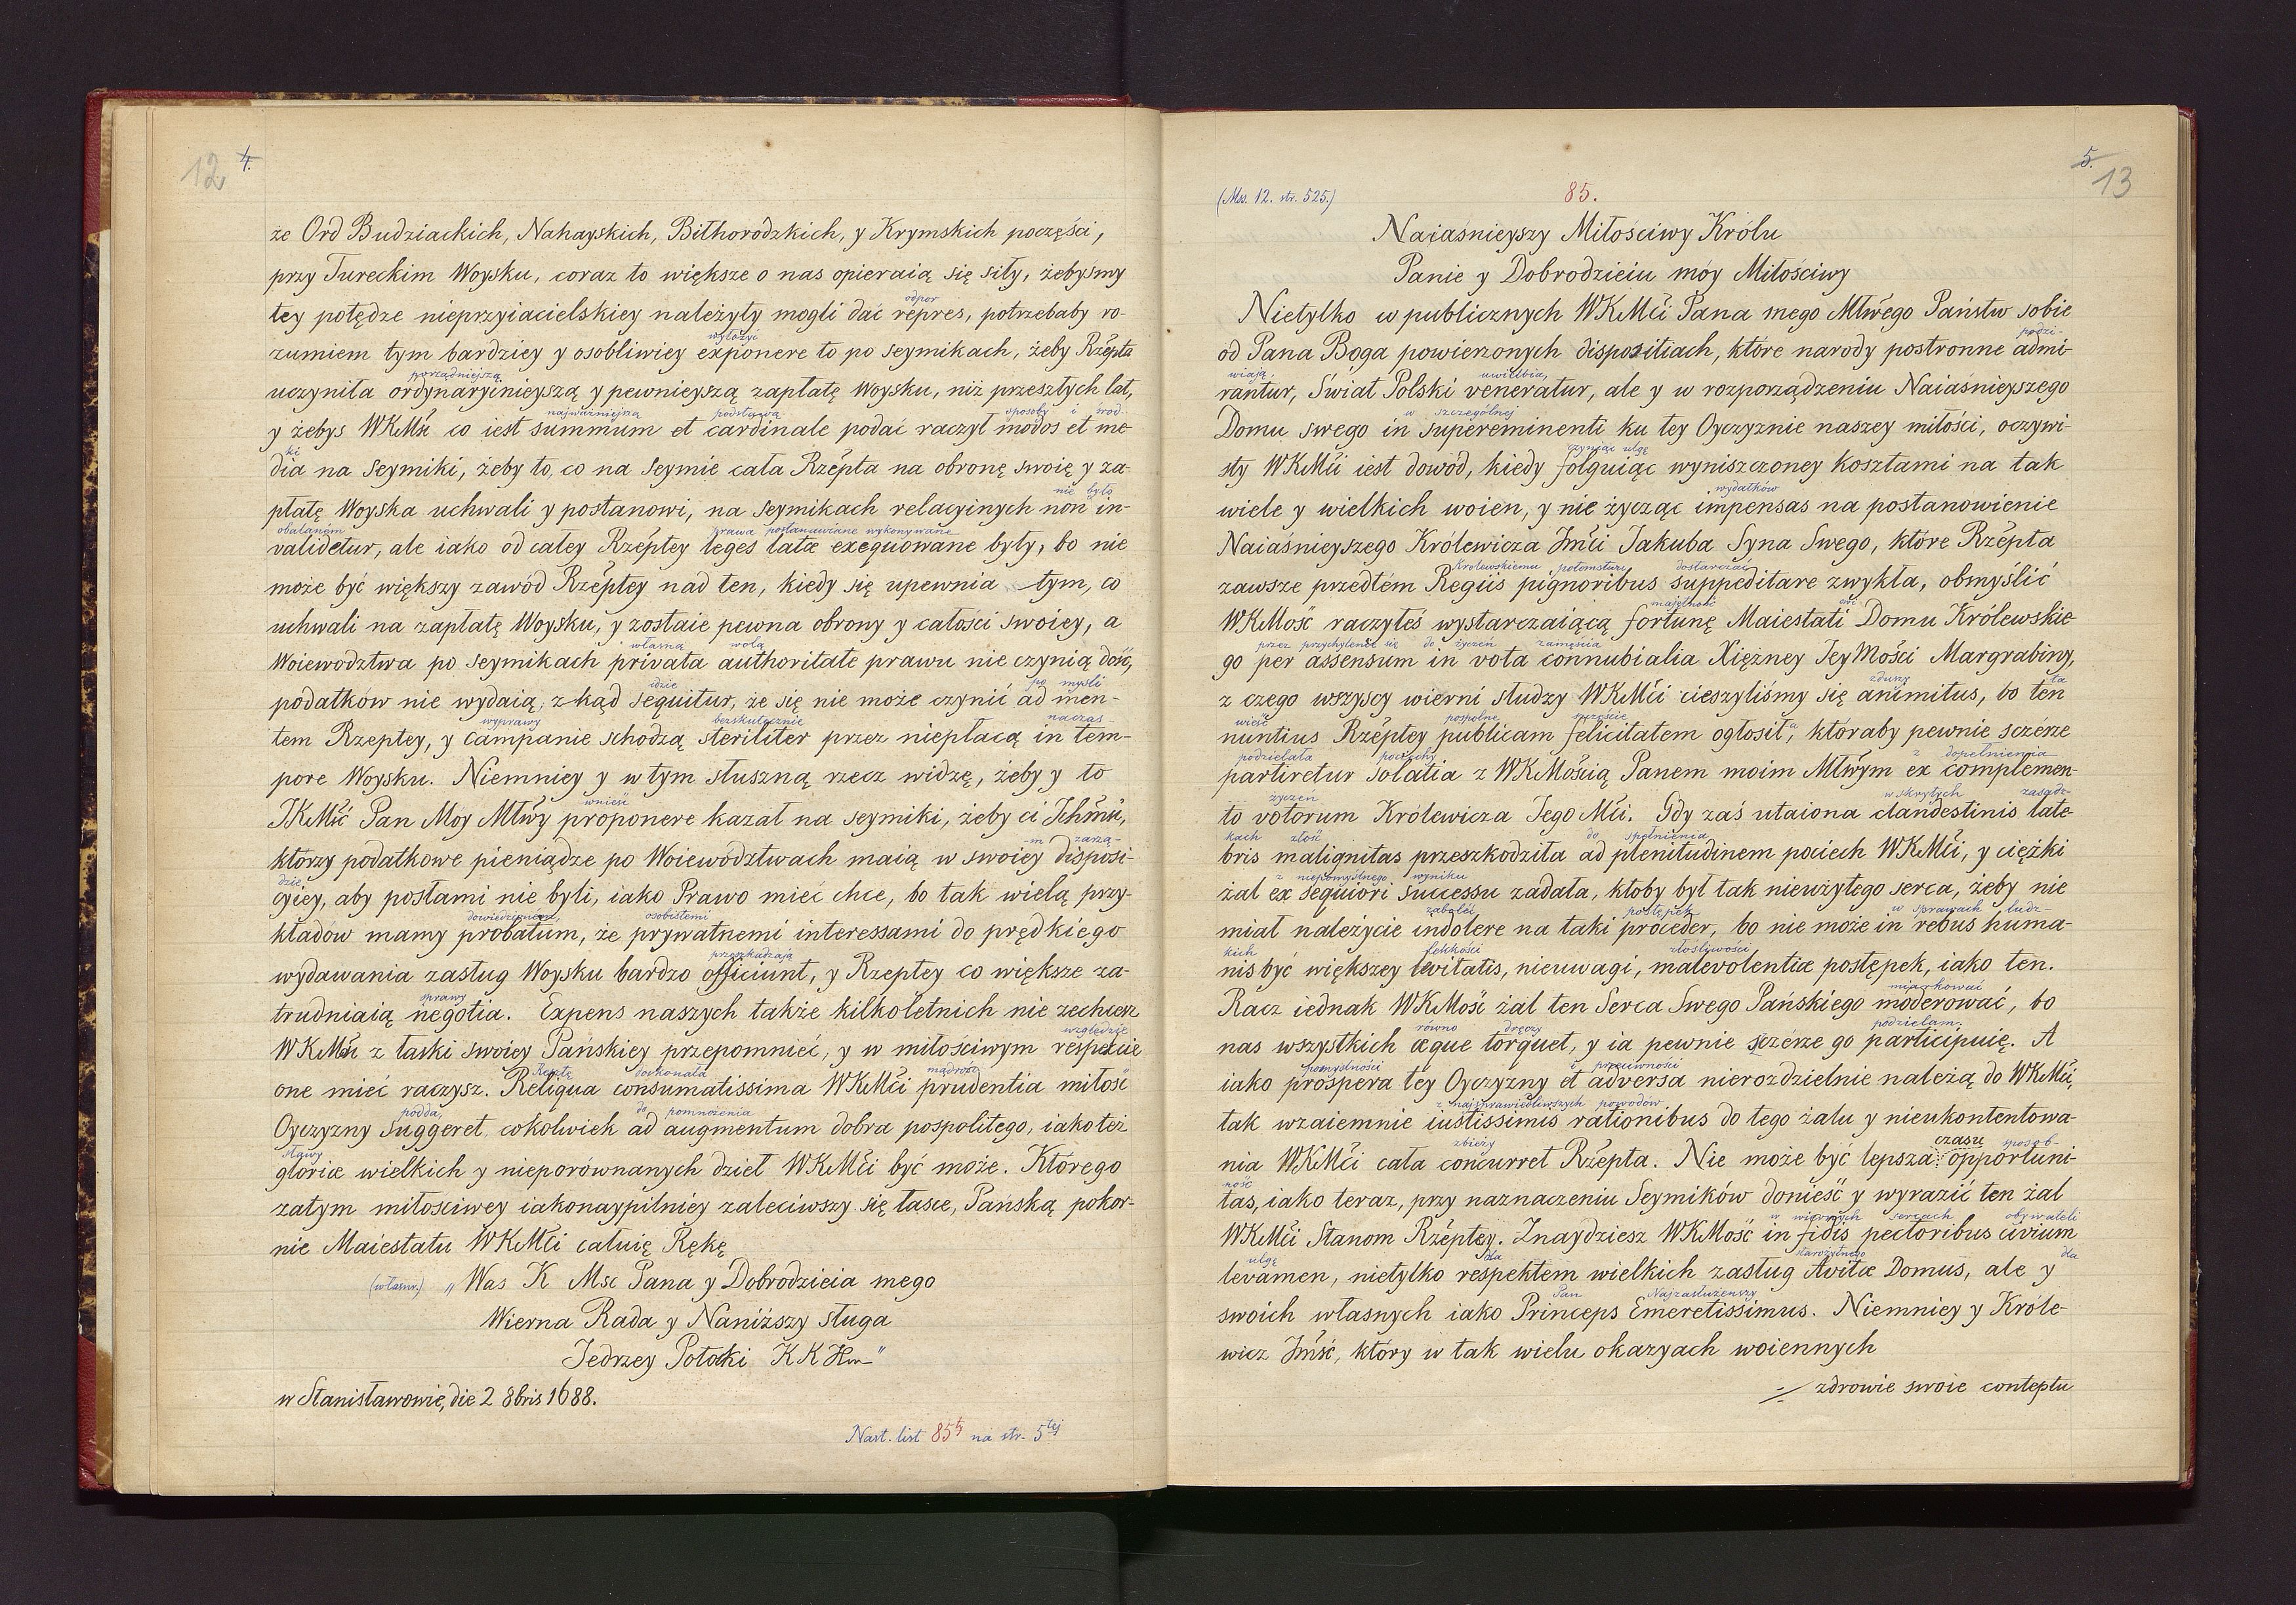 12 4.
że Ord Budziackich, Nahayskich, Biłhorodzkich, y Krymskich poczęści,
przy Tureckim Woysku, coraz to większe o nas opieraią się siły, żebysmy
odpor
tey potędze nieprzyiacielskiey należyty mogli dać repres, potrzebaby ro-
wyłożyć
zumiem tym bardziey y osobliwiey exponere to po seymikach, żeby Rzépta
porządniejszą
uczyniła ordynaryinieyszą y pewnieyszą zapłatę Woysku, niż przeszłych lat,
najważniejszą podstawą sposoby i środ-
y żebys WKMść co iest summum et cardinale podać raczył modos et me-
ki
dia na Seymiki, żeby to, co na Seymie cała Rzépta na obronę swoię y za-
nie było
płatę Woyska uchwali y postanowi, na Seymikach relacyinych non in-
obalaném prawa postanawiane wykonywane
validetur, ale iako od całey Rzéptey leges latæ exequowane były, bo nie
może być większy zawód Rzéptey nad ten, kiedy się upewnia tym, co
uchwali na zapłatę Woysku, y zostaie pewna obrony y całości swoiey, a
własną wolą
Woiewodztwa po Seymikach privata authoritate prawu nie czynią dość,
idzie po myśli
podatków nie wydaią, z kąd sequitur, że się nie może czynić ad men-
wyprawy bezskutecznie naczas-
tem Rzeptey, y campanie schodzą steriliter przez niepłacą in tem-
pore Woysku. Niemniey y w tym słuszną rzecz widzę, żeby y to
wnieść
JKMść Pan Moy Młwy proponere kazał na seymiki, żeby ci Ichmść,
-m zarzą-
którzy podatkowe pieniądze po Woiewództwach maią w swoiey disposi-
dzie
cyiey, aby posłami nie byli, iako Prawo mieć chce, bo tak wielą przy-
dowiedzionem, osobistemi
kładów mamy probatum, że prywatnemi interessami do prędkiego
przeszkadzają
wydawania zasług Woysku bardzo officiunt, y Rzeptey co większe za-
sprawy
trudniaią negotia. Expens naszych także kilkoletnich nie zechcesz
względzie
WKMść z łaski swoiey Pańskiey przepomnieć, y w miłościwym respekcie
Resztę doskonała mądrość
one mieć raczysz. Reliqua consumatissima WKMści prudentia miłość
podda, do pomnożenia
Oyczyzny suggeret, cokolwiek ad augmentum dobra pospolitego, iako też
sławy
gloriæ wielkich y nieporównanych dzieł WKMści być może. Którego
zatym miłosciwey iakonaypilniéy zaleciwszy się łasce, Pańską pokor-
nie Maiestatu WKMści całuię Rękę
(własnr.) „Was K Msc Pana y Dobrodzieia mego
Wierna Rada y Naniższy sługa
Jedrzey Potocki K K Hm"
w Stanisławowie, die 2 8bris 1688.
Nast. list 85ty na str. 5tej
5. 13
(Ms. 12. str. 525.) 85.
Naiaśnieyszy Miłościwy Królu
Panie y Dobrodzieiu móy Miłościwy
Nietylko w publicznych WKMści Pana mego Młwego Państw sobie
podzi-
od Pana Boga powierzonych dispositiach, które narody postronne admi-
wiają, uwielbia,
rantur, Świat Polski veneratur, ale y w rozporządzeniu Naiasnieyszego
w szczególnej
Domu swego in supereminenti ku tey Oyczyznie naszey miłości, oczywi-
czyniąc ulgę
sty WKMści iest dowód, kiedy folguiąc wyniszczoney kosztami na tak
wydatków
wiele y wielkich woien, y nie życząc impensas na postanowienie
Naiaśnieyszego Królewicza Jmści Jakuba Syna Swego, które Rzépta
Królewskiemu potomstwu dostarczać
zawsze przedtém Regiis pignoribus suppeditare zwykła, obmyślić
majętność
WKMość raczyłeś wystarczaiącą fortunę Maiestati Domu Królewskie-
przez przychylenie się do życzeń zamęścia
go per assensum in vota connubialia Xiężney JeyMości Margrabiny,
zduszy ta
z czego wszyscy wierni słudzy WKMści cieszyliśmy się animitus, bo ten
wieść pospolne szczęście
nuntius Rzéptey publicam felicitatem ogłosił, któraby pewnie sczérze
podzielała pociechy z dopełnienia
partiretur solatia z WKMością Panem moim Młwym ex complemen-
życzeń w skrytych zasadz-
to votorum Królewicza Jego Mści. Gdy zaś utaiona clandestinis late-
kach złość do spełnienia
bris malignitas przeszkodziła ad plenitudinem pociech WKMści, y ciężki
z niepomyślnego wyniku
żal ex sequiori successu zadała, ktoby był tak nieużytego serca, żeby nie
zaboleć postępek w sprawach ludz-
miał należycie indolere na taki proceder, bo nie może in rebus huma-
kich lekkości złośliwości
nis być większey levitatis, nieuwagi, malevolentiæ postępek, iako ten.
miarkować
Racz iednak WKMość żal ten Serca Swego Pańskiego moderować, bo
równo dręczy podzielam.
nas wszystkich æque torquet, y ia pewnie szczérze go participuię. A
pomyślności i przeciwności
iako prospera tey Oyczyzny et adversa nierozdzielnie należą do WKMści,
z najsprawiedliwszych powodów
tak wzaiemnie iustissimis rationibus do tego żalu y nieukontentowa-
zbieży czasu sposob-
nia WKMści cała concurret Rzépta. Nie może być lepsza opportuni-
ność
tas, iako teraz, przy naznaczeniu Seymików donieść y wyrazić ten żal
w wiernych sercach obywateli
WKMści Stanom Rzéptey. Znaydziesz WKMość in fidis pectoribus civium
ulgę dla starożytnego dla
levamen, nietylko respektem wielkich zasług Avitæ Domus, ale y
Pan Najzasłużeńszy
swoich własnych iako Princeps Emeretissimus. Niemniey y Króle-
wicz Jmść, który w tak wielu okazyach woiennych
zdrowie swoie conteptu